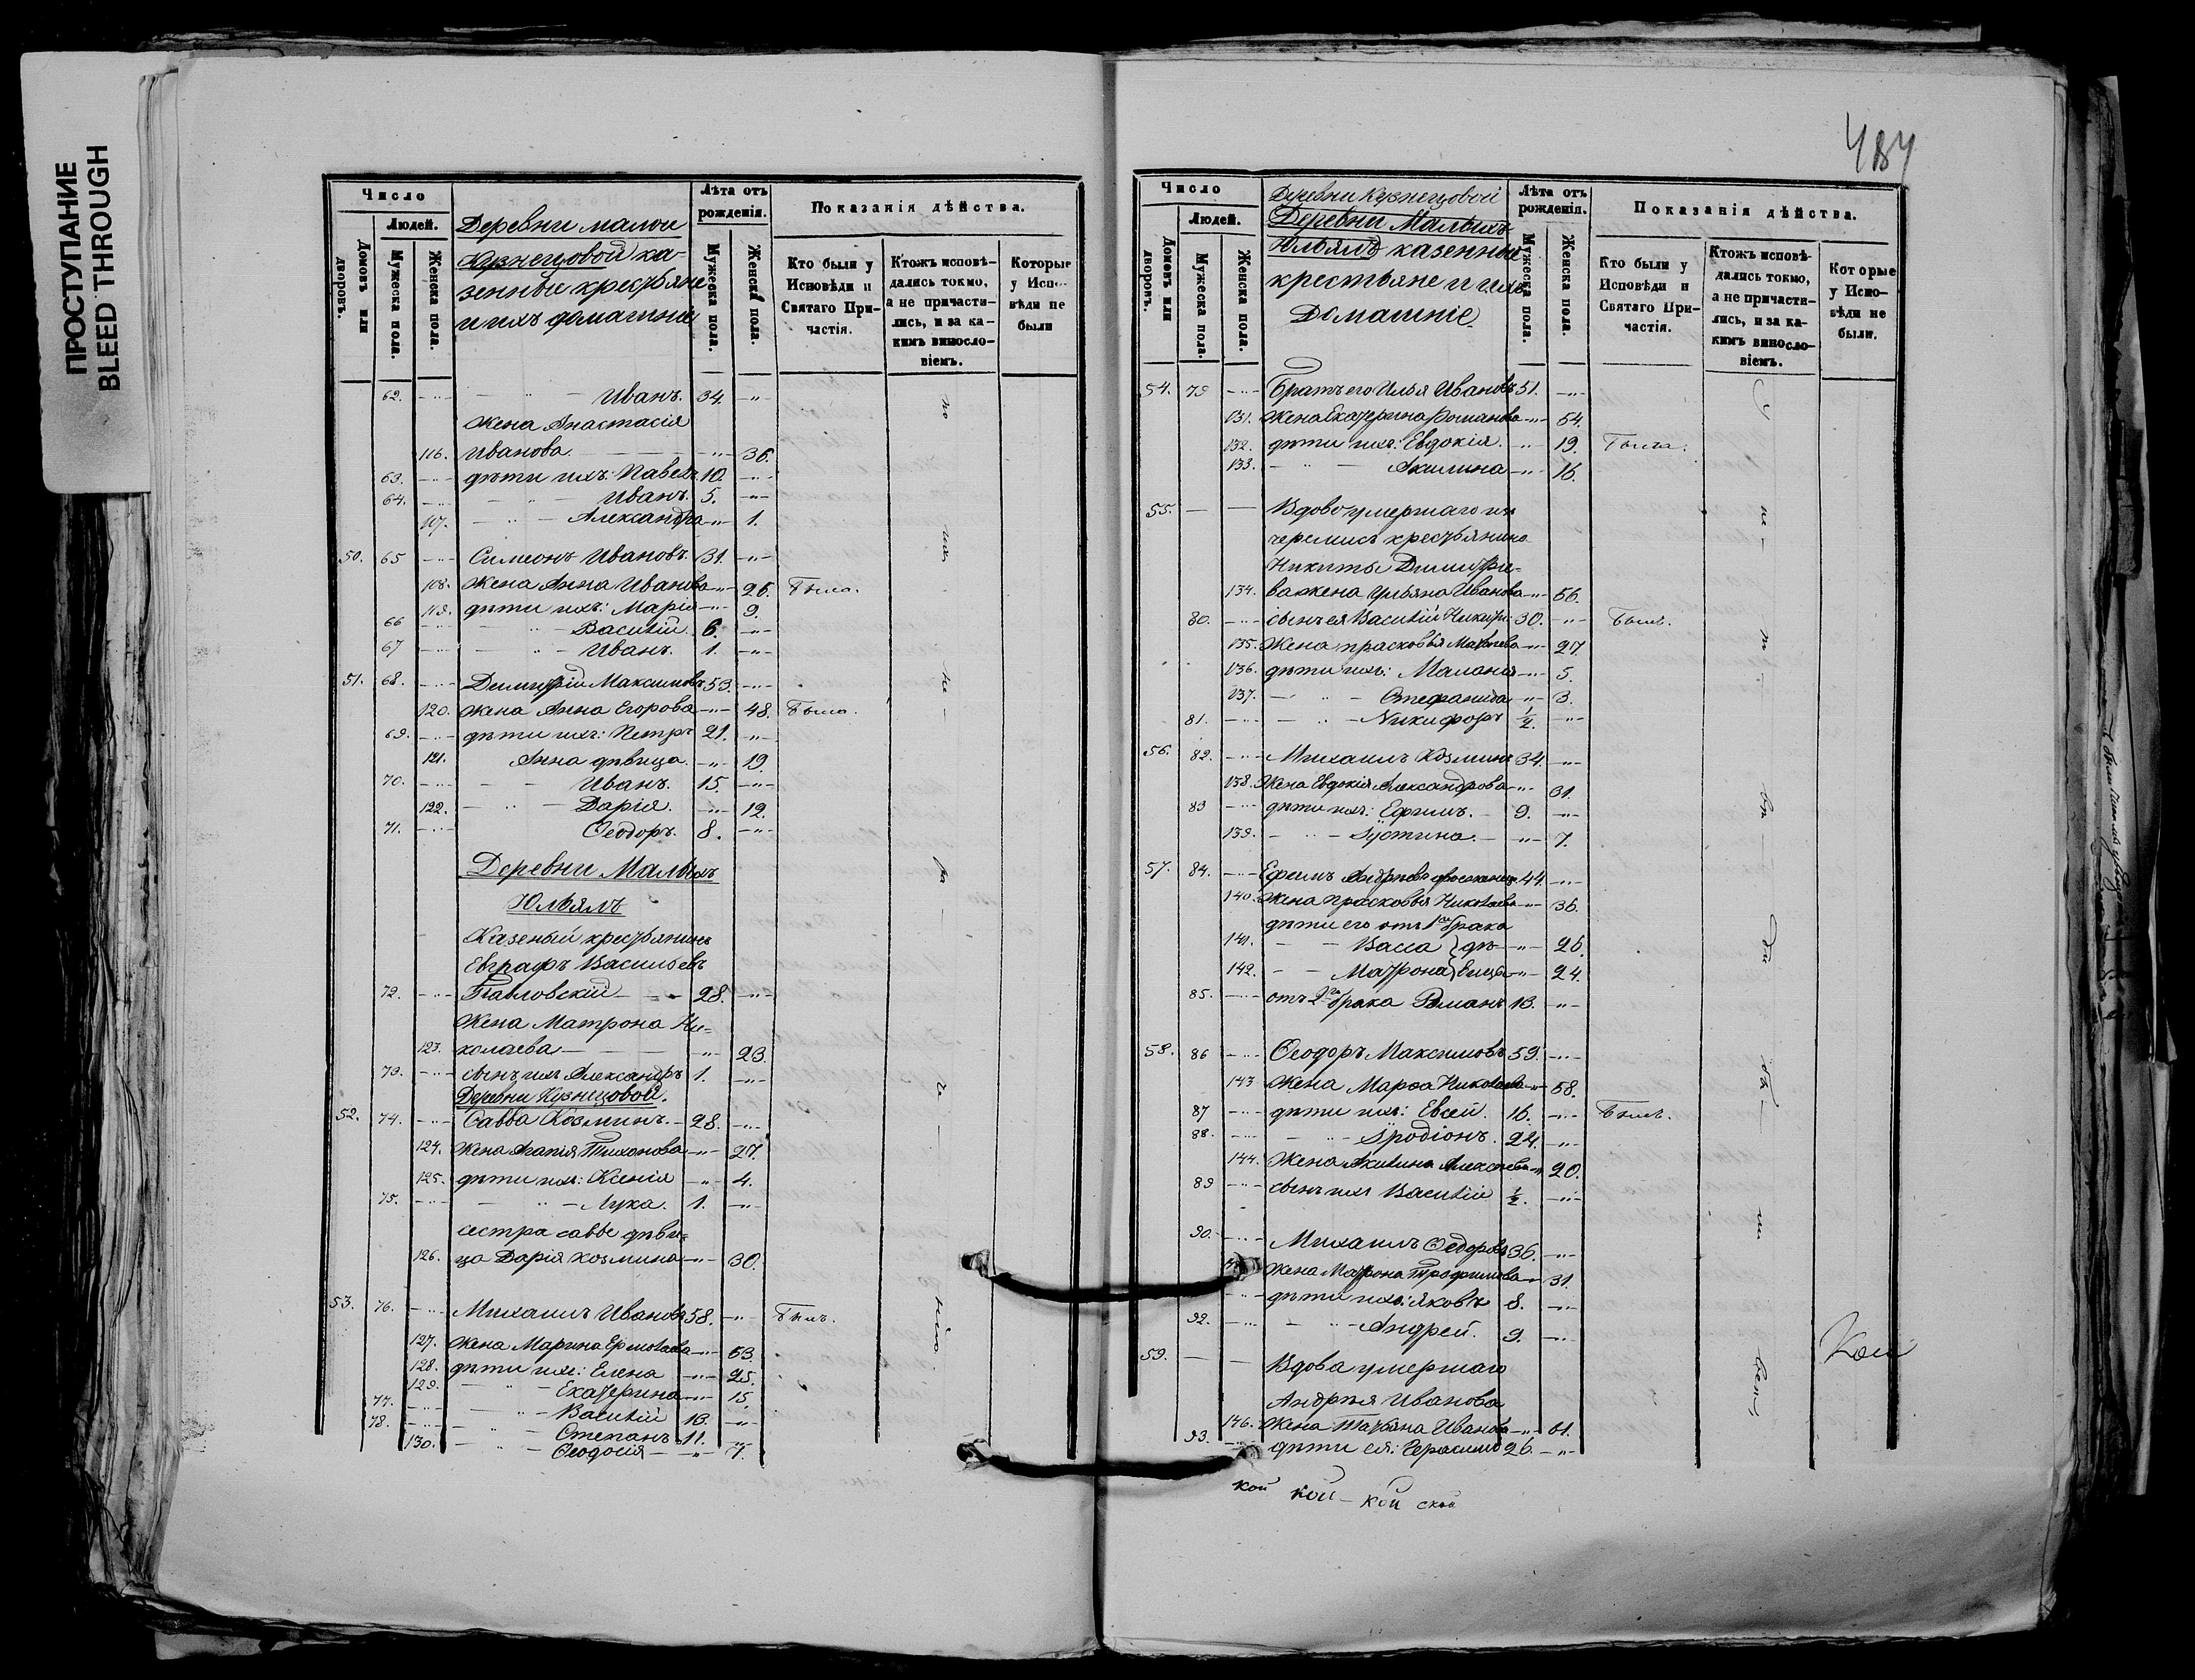 ПРОСТУПАНИЕ
BLEED THROUGH
Число
Людей.
Домовъ или дворовъ.
Мужеска пола.
Женска пола.
Деревни малои
Кузнецовой ка-
зенные крестьяне
и ихъ домашніе
Лѣта отъ рожденія.
Мужеска пола.
Женска пола.
Показанія дѣйства.
Кто были у Исповѣди и Святаго Причастія.
Ктожъ исповѣ-
дались токмо,
а не причасти-
лись, и за ка-
кимъ винosло-
віемъ.
Которые
у Испо-
вѣди не
были
62. Иванъ. 34.
Жена Анастасія
116. Иванова 36.
63. дѣти ихъ: Павелъ 10.
64. Иванъ. 5.
117. Александра 1.
50. 65 Симеонъ Ивановъ. 31.
118. Жена Анна Иванова 26. Была.
119. дѣти ихъ: Марія 9.
66 Василій 6.
67 Иванъ. 1.
51. 68. Димитрій Максимовъ 53.
120. Жена Анна Егорова 48. Была.
69. дѣти ихъ: Петръ 21.
121. Анна дѣвица 19.
70. Иванъ. 15.
122. Дарія. 12.
71. Ѳеодоръ. 8.
Деревни Малыхъ
Юльялъ
Казеный крестьянинъ
Евграфъ Васильевъ
72. Павловскій 28.
Жена Матрона Ни-
123. колаева 23.
73. сынъ ихъ Александръ 1.
Деревни Кузнецовой.
52. 74. Савва Козминъ. 28.
124. Жена Агапія Тихонова 27.
125. дѣти ихъ: Ксенія 4.
75. Лука. 1.
сестра саввы дѣви-
126. ца Дарія Козмина 30.
53. 76. Михаилъ Ивановъ 58. Былъ.
127. Жена Марина Ермолаева 53.
128. дѣти ихъ: Елена 25.
129. Екатерина 15.
77. Василій 13.
78. Степанъ 11.
130. Ѳеодосія 7.
484
Число
Людей.
Домовъ или дворовъ.
Мужеска пола.
Женска пола.
Деревни Кузнецовой
Деревни Малыхъ
Юльялъ казенные
крестьяне и ихъ
Домашніе
Лѣта отъ рожденія.
Мужеска пола.
Женска пола.
Показанія дѣйства.
Кто были у Исповѣди и Святаго Причастія.
Ктожъ исповѣ-
дались токмо,
а не причасти-
лись, и за ка-
кимъ винosло-
віемъ.
Которые
у Испо-
вѣди не
были.
54. 79 Братъ его Илья Ивановъ 51.
131. Жена Екатерина Романова 54.
132. дѣти ихъ: Евдокія. 19. Была.
133. Акилина 16.
55. Вдово умершаго изъ
черемисъ крестьянина
Никиты Димитріе-
134. ва жена Ульяна Иванова 56.
80. сынъ ея Василій Никитинъ 30. Былъ.
135. Жена прасковья Матвѣева 27.
136. дѣти ихъ: Маланія 5.
137. Стефанида 3.
81. Никифоръ ½.
56. 82. Михаилъ Козминъ 34.
138. Жена Евдокія Александрова 31.
83 дѣти ихъ: Ефимъ. 9.
139. Іустина. 7.
57. 84. Ефимъ Андреевъ двоеженецъ 44.
140. Жена прасковья Николаева 36.
дѣти его отъ 1го брака
141. Васса дѣ- 26.
142. Матрона вицы 24.
85. отъ 2го брака Романъ 13.
58. 86 Ѳеодоръ Максимовъ 59.
143 Жена Марѳа Николаева 58.
87 дѣти ихъ: Евсей. 16. Былъ.
88. Іродіонъ. 24.
144. Жена Акилина Алексѣева 20.
89 сынъ ихъ Василій ½.
90. Михаилъ Ѳедоровъ 36.
Жена Матрона Трофимова 31.
дѣти ихъ: Яковъ 8.
92. Андрей. 9.
59. Вдова умершаго
Андрея Иванова
146. Жена Татьяна Иванова 61.
93. дѣти ея: Герасимъ 26.
Кой
кой кой - кой ской